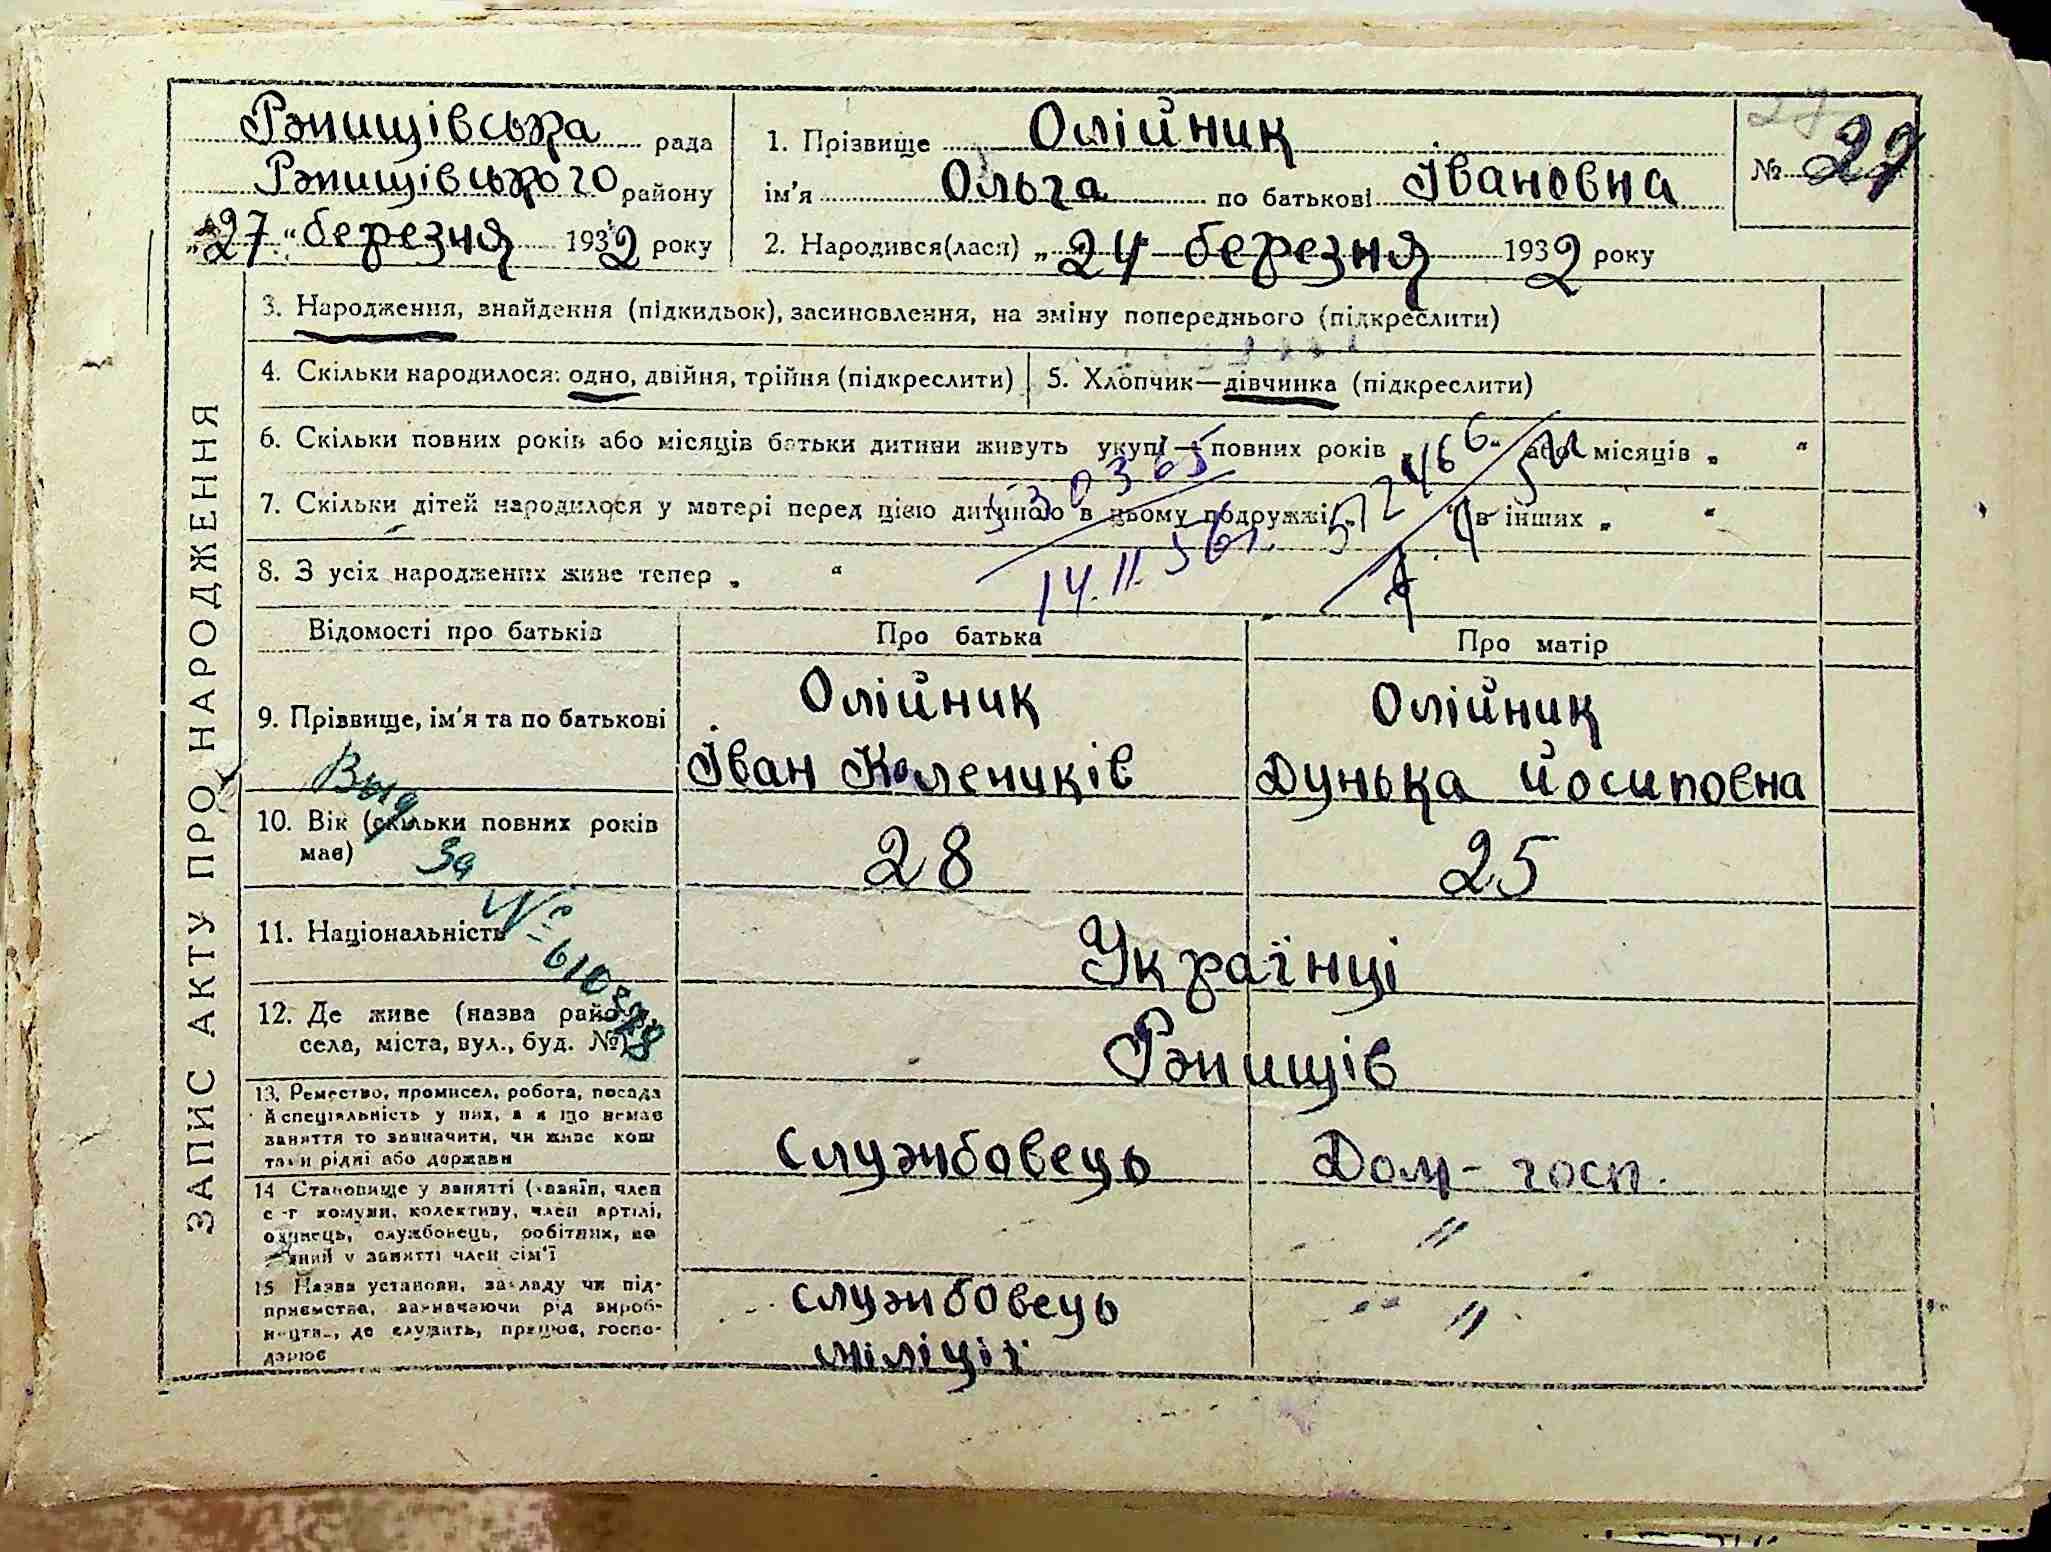 Ржищівська рада
Ржищівського району
„27“ березня 1932 року
1. Прізвище Олійник
ім'я Ольга по батькові Івановна
№ 27
2. Народився(лася) „24 березня 1932 року
3. Народження, знайдення (підкидьок), засиновлення, на зміну попереднього (підкреслити)
4. Скільки народилося: одно, двійня, трійня (підкреслити)
5. Хлопчик—дівчинка (підкреслити)
6. Скільки повних років або місяців батьки дитини живуть укупі — повних років „ “ або місяців „ “
7. Скільки дітей народилося у матері перед цією дитиною в цьому подружжі „ “ в інших „ “
8. З усіх народжених живе тепер „ “
14.II.56г.
ЗАПИС АКТУ ПРО НАРОДЖЕННЯ
Відомості про батьків
Про батька
Про матір
9. Прізвище, ім'я та по батькові
Олійник
Іван Колеников
Олійник
Дунька Йосиповна
Выд
за
№
10. Вік (скільки повних років
має)
28
25
11. Національність
Українці
12. Де живе (назва району,
села, міста, вул., буд. №)
Ржищів
13. Ремество, промисел, робота, посада
й спеціяльність у них, а якщо немає
заняття то зазначити, чи живе кош
тами рідні або держави
службовець
Дом-госп.
14 Становище у занятті (хазяїн, член
с-г комуни, колективу, член артілі,
одинець, службовець, робітник,
у занятті член сім'ї
〃
15 Назва установи, закладу чи під-
приємства, зазначаючи рід вироб-
ництва, де служить, працює, госпо-
дарює
службовець
міліції
〃